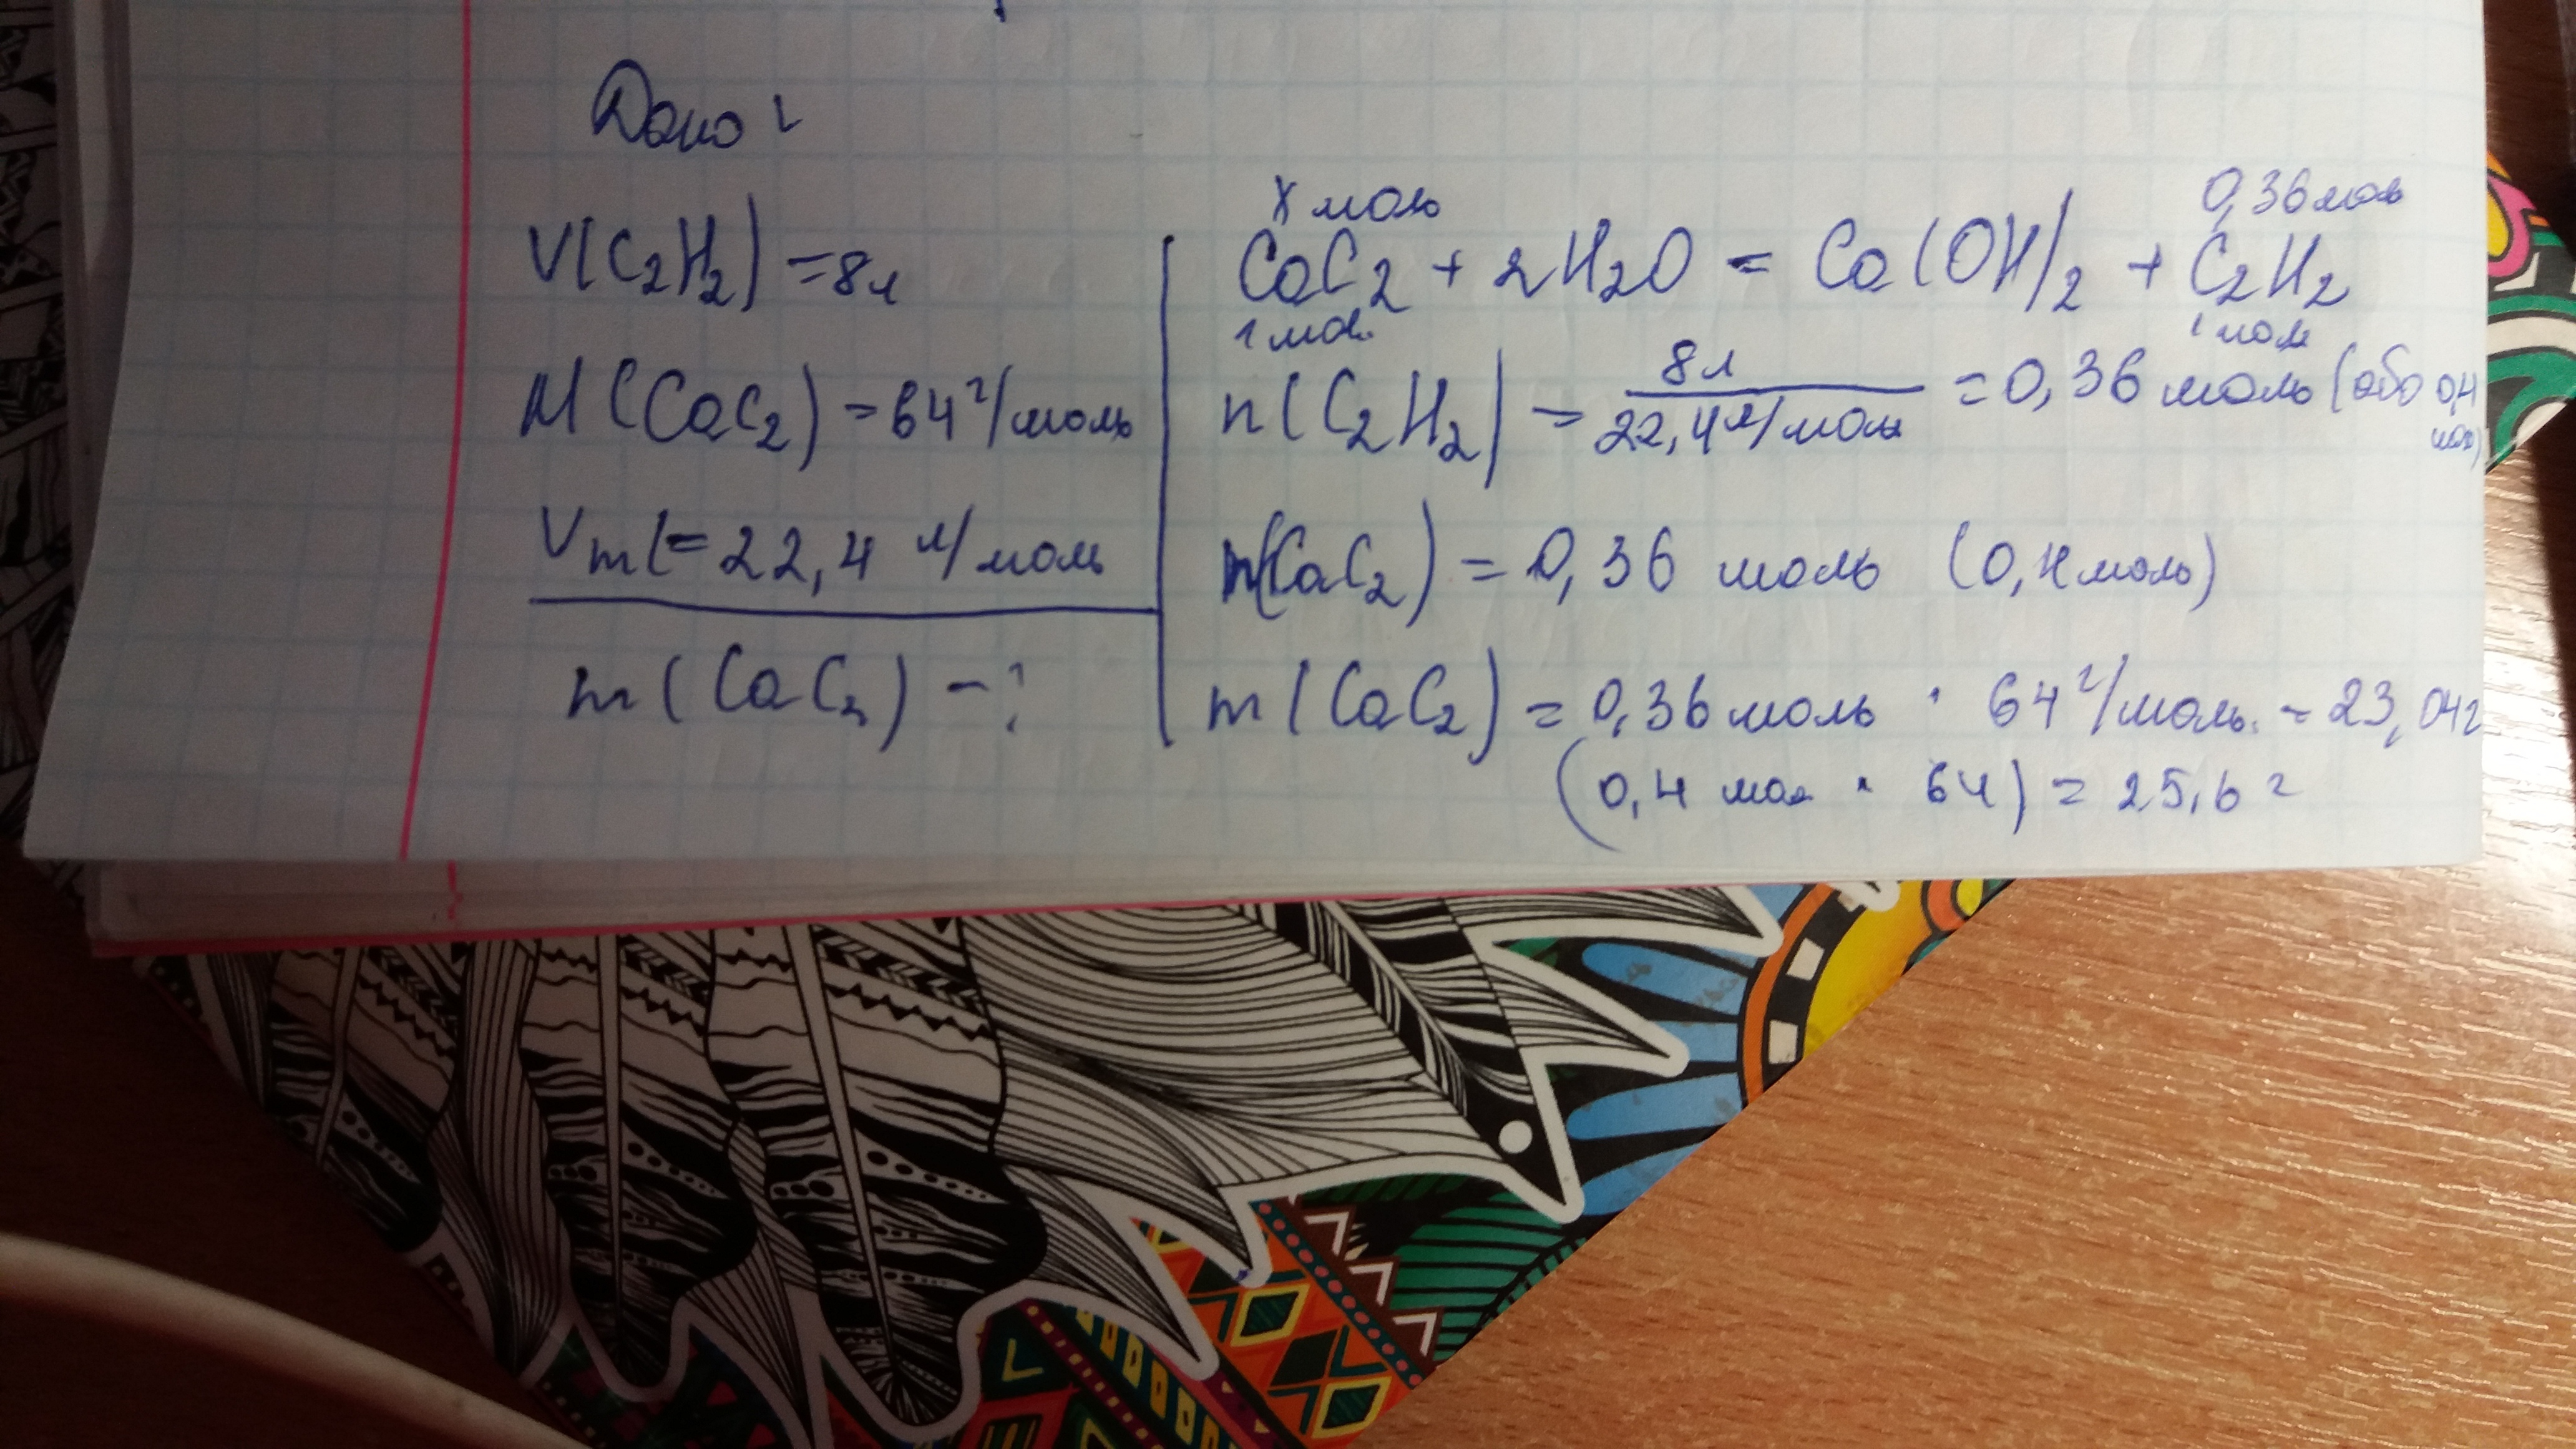 Дано:
V(C₂H₂) = 8л
M(CaC₂) = 64 г/моль
Vm = 22,4 л/моль
m(CaC₂) - ?
x моль 0,36 моль
CaC₂ + 2H₂O = Ca(OH)₂ + C₂H₂
1 мол. 1 моль
n(C₂H₂) = 8л / 22,4 л/моль = 0,36 моль (або 0,4 моль)
n(CaC₂) = 0,36 моль (0,4 моль)
m(CaC₂) = 0,36 моль · 64 г/моль = 23,04г
(0,4 моль · 64) = 25,6 г